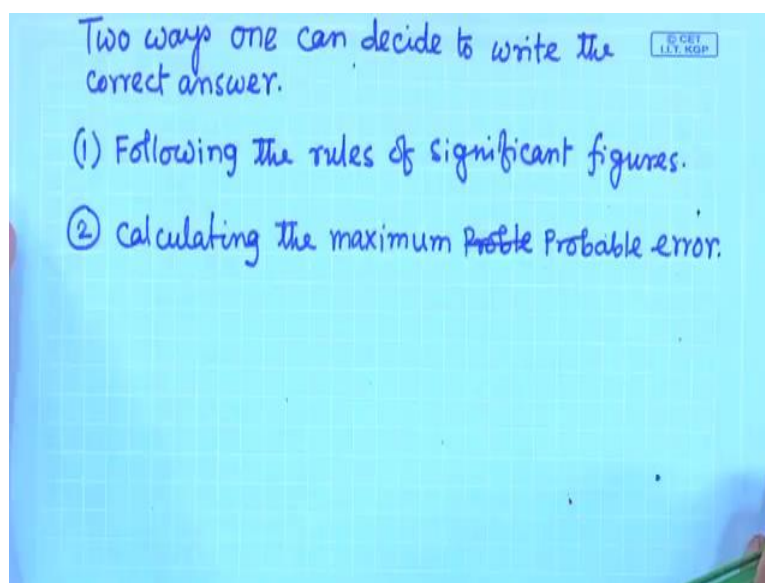 Two ways one can decide to write the
correct answer.
© CET
I.I.T. KGP
(1) Following the rules of significant figures.
② Calculating the maximum ~~Proble~~ Probable error.